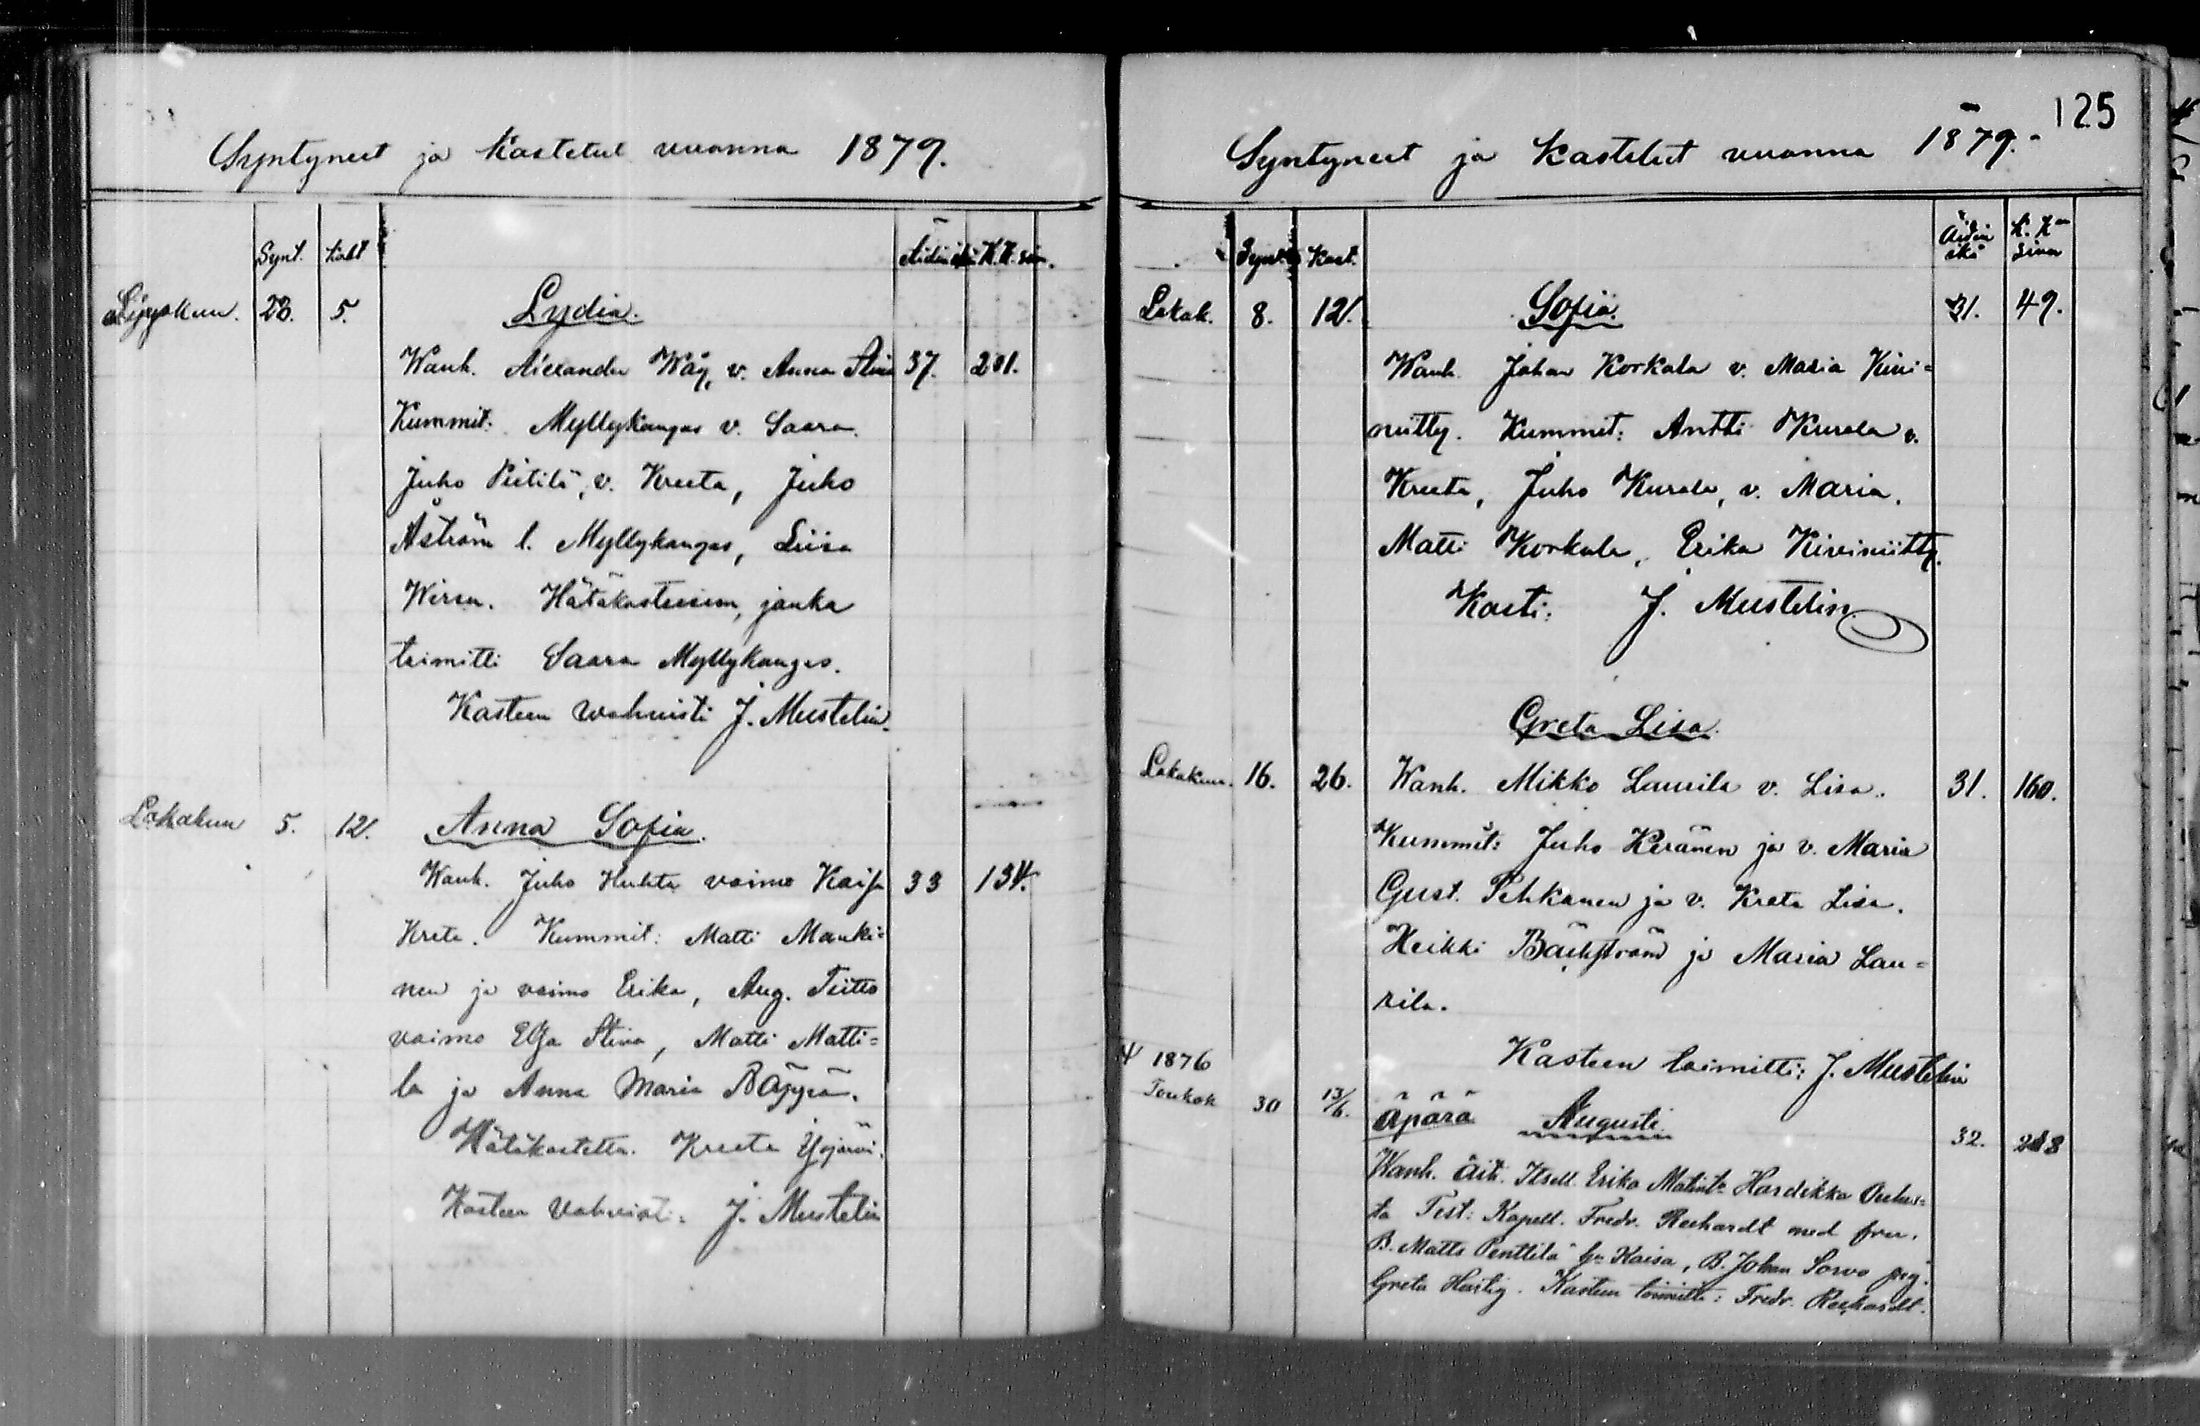 125
Syntyneet ja Kastetut vuonna 1879.
Synt. Kast Äidin ikä K.K. siv.
Syyskuu. 28. 5. Lydia.
Wanh. Alexander Wäy, v. Anna Stina 37. 201.
Kummit: Myllykangas v. Saara.
Juho Pietilä, v. Kreeta, Juho
Åström l. Myllykangas, Liisa
Wirsu. Hätäkasteesen, jonka
toimitti Saara Myllykangas.
Kasteen wahvisti J. Mustelin.
Lokakuu 5. 12. Anna Sofia.
Wanh. Juho Huhta vaimo Kaisa 33 134.
Kreta. Kummit: Matti Manki=
nen ja vaimo Erika, Aug. Tiitto
vaimo Elsa Stina, Matti Matti=
la ja Anna Maria Räppä.
Hätäkastettu. Kreeta Yojärvi.
Kasteen Vahvisti: J. Mustelin
Syntyneet ja Kastetut vuonna 1879.
Synt. Kast. Äidin ikä K. K. Sivu
Lokak. 8. 12. Sofia. 31. 49.
Wanh. Johan Korkala v. Maria Kivi=
niitty. Kummit: Antti Kurala v.
Kreeta, Juho Kurala, v. Maria.
Matti Korkala, Erika Kiviniitty.
Kasti: J. Mustelin.
Greta Lisa.
Lokakuu. 16. 26. Wanh. Mikko Laurila v. Lisa. 31. 160.
Kummit: Juho Keränen ja v. Maria
Gust. Pehkonen ja v. Kreta Lisa.
Heikki Bäckström ja Maria Lau=
rila.
Kasteen toimitti: J. Mustelin
1876
Toukok 30 13/6. Äpärä Augusti 32. 288
Wanh. äiti. Itsell. Erika Matint. Hardikka
Test: Kapell. Fredr. Reuhardt med fru.
B. Matts Penttilä h:u Kaisa, B. Johan Sorvo pig.
Greta Hastig. Kasteen toimitti: Fredr. Reuhardt.